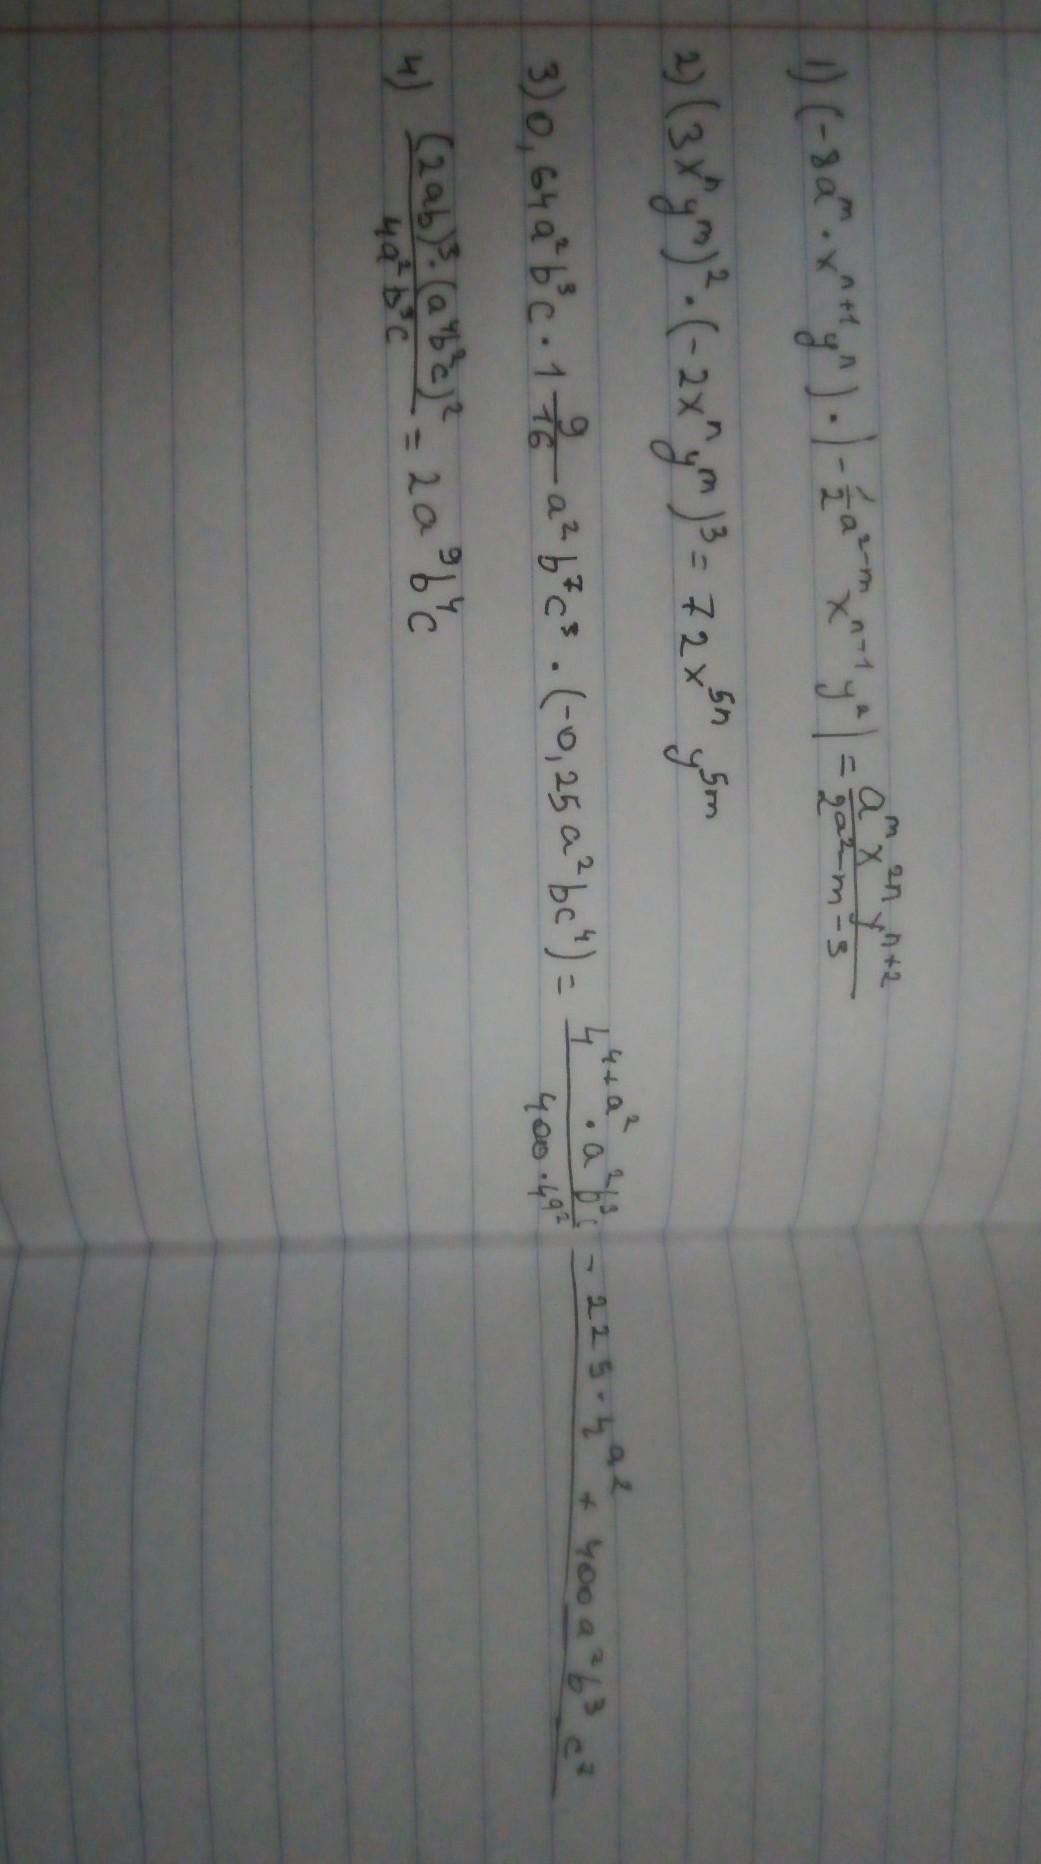 1) (-8a^m · x^{n+1} y^n) · |-1/2 a^{2-m} x^{n-1} y^2| = a^m x^{2n} y^{n+2} / 2a^{2-m-3}
2) (3x^n y^m)^2 · (-2x^n y^m)^3 = 72x^{5n} y^{5m}
3) 0,64a^2 b^3 c · 1 9/16 a^2 b^7 c^3 · (-0,25a^2 bc^4) = 4^{4+a^2} · a^2 b^3 / 400 · 49^2 - 225 · 4^{a^2} + 400a^2 b^3 c^7
4) (2ab)^3 · (a^4 b^2 c)^2 / 4a^2 b^3 c = 2a^9 b^4 c